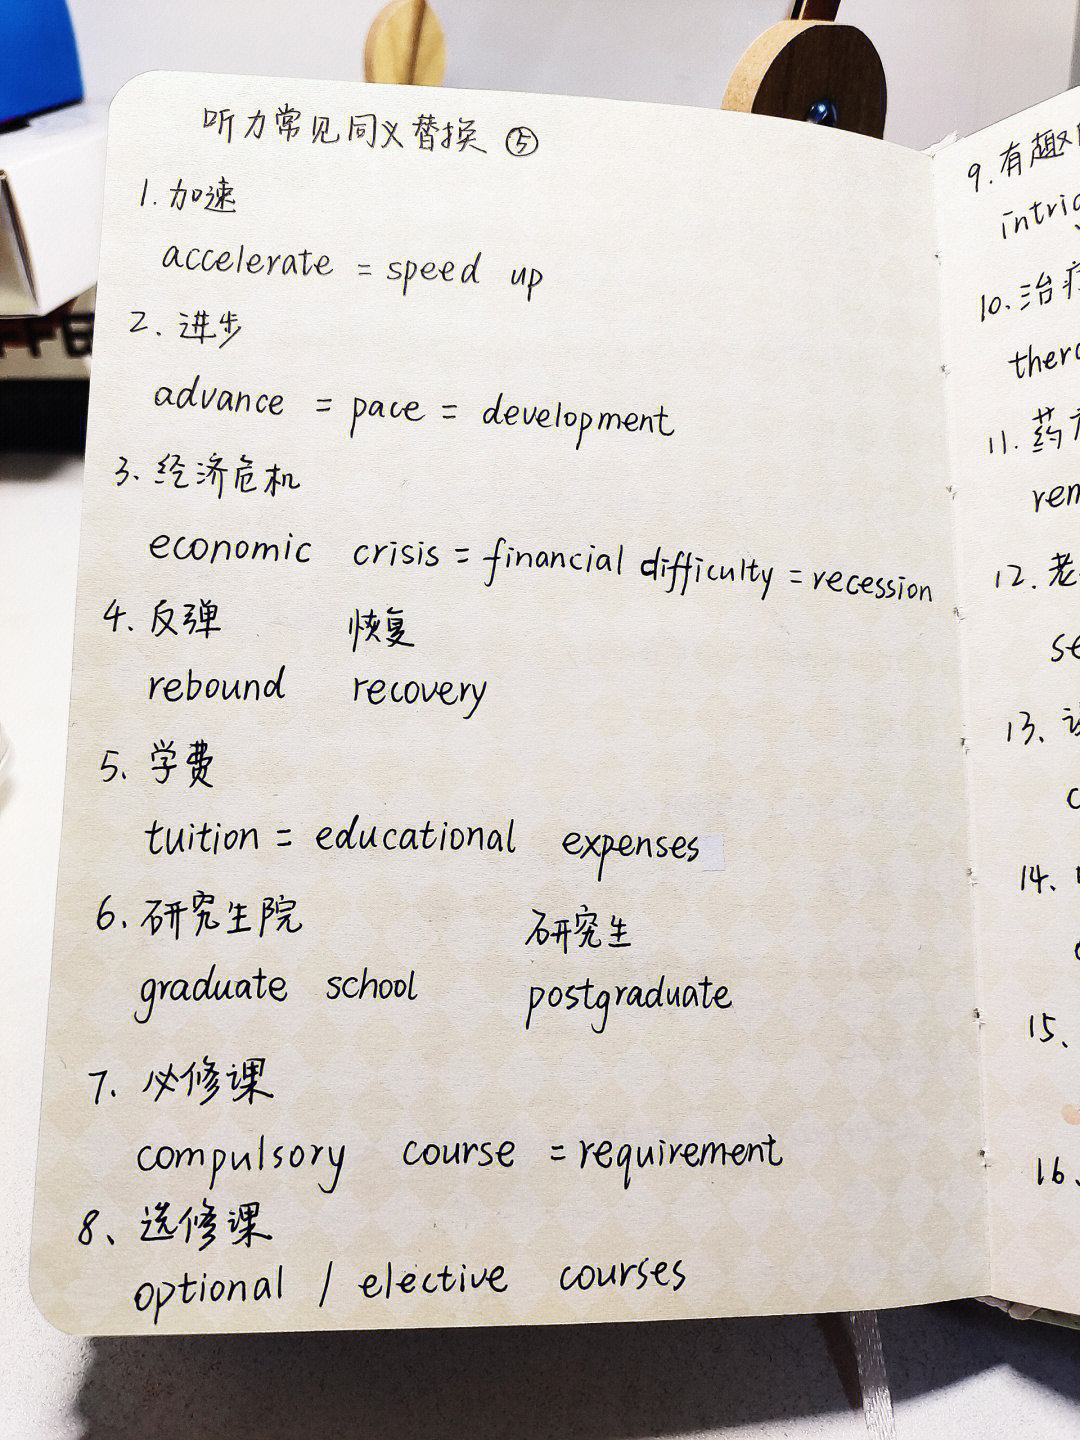 听力常见同义替换 ⑤
1. 加速
accelerate = speed up
2. 进步
advance = pace = development
3. 经济危机
economic crisis = financial difficulty = recession
4. 反弹 恢复
rebound recovery
5. 学费
tuition = educational expenses
6. 研究生院 研究生
graduate school postgraduate
7. 必修课
compulsory course = requirement
8、选修课
optional / elective courses
9. 有趣
10. 治
11. 药
12. 老
13、
14、
15、
16、